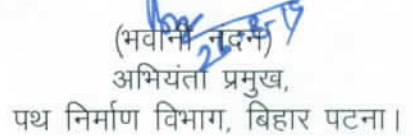 26-8-15
(भवानी नंदन)
अभियंता प्रमुख,
पथ निर्माण विभाग, बिहार पटना।